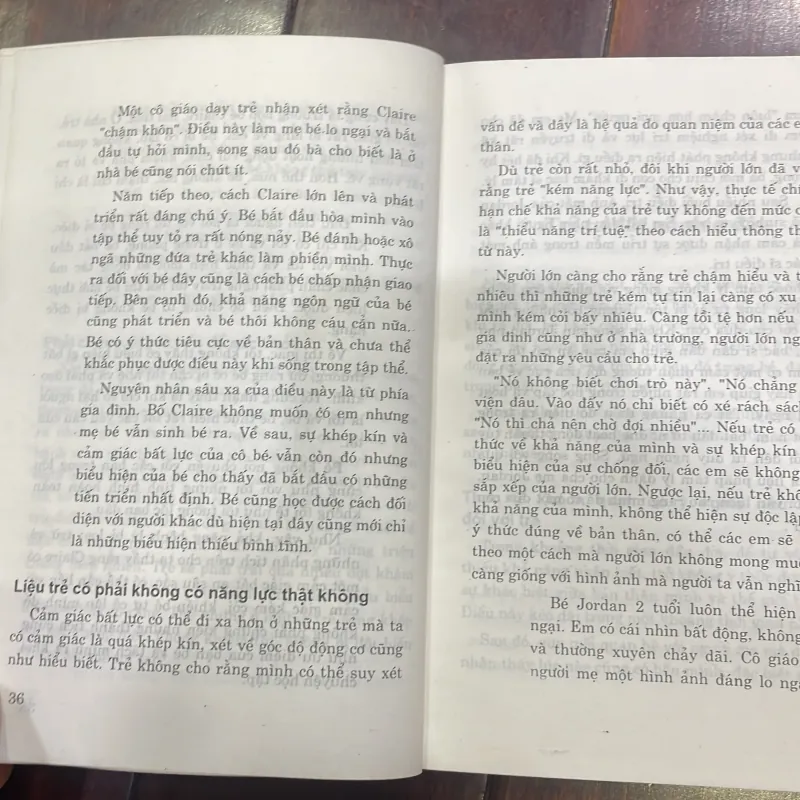 Một cô giáo dạy trẻ nhận xét rằng Claire
"chậm khôn". Điều này làm mẹ bé lo ngại và bắt
đầu tự hỏi mình, song sau đó bà cho biết là ở
nhà bé cũng nói chút ít.
Năm tiếp theo, cách Claire lớn lên và phát
triển rất đáng chú ý. Bé bắt đầu hòa mình vào
tập thể tuy tỏ ra rất nóng nảy. Bé đánh hoặc xô
ngã những đứa trẻ khác làm phiền mình. Thực
ra đối với bé đây cũng là cách bé chấp nhận giao
tiếp. Bên cạnh đó, khả năng ngôn ngữ của bé
cũng phát triển và bé thôi không cáu cắn nữa.
Bé có ý thức tiêu cực về bản thân và chưa thể
khắc phục được điều này khi sống trong tập thể.
Nguyên nhân sâu xa của điều này là từ phía
gia đình. Bố Claire không muốn có em nhưng
mẹ bé vẫn sinh bé ra. Về sau, sự khép kín và
cảm giác bất lực của cô bé vẫn còn đó nhưng
biểu hiện của bé cho thấy đã bắt đầu có những
tiến triển nhất định. Bé cũng học được cách đối
diện với người khác dù hiện tại đây cũng mới chỉ
là những biểu hiện thiếu bình tĩnh.
Liệu trẻ có phải không có năng lực thật không
Cảm giác bất lực có thể đi xa hơn ở những trẻ mà ta
có cảm giác là quá khép kín, xét về góc độ động cơ cũng
như hiểu biết. Trẻ không cho rằng mình có thể suy xét
36
vấn đề và đây là hệ quả do quan niệm của các e
thân.
Dù trẻ còn rất nhỏ, đôi khi người lớn đã v
rằng trẻ "kém năng lực". Như vậy, thực tế chỉ
hạn chế khả năng của trẻ tuy không đến mức c
là "thiểu năng trí tuệ" theo cách hiểu thông th
từ này.
Người lớn càng cho rằng trẻ chậm hiểu và t
nhiêu thì những trẻ kém tự tin lại càng có xu
mình kém cỏi bấy nhiêu. Càng tồi tệ hơn nếu
gia đình cũng như ở nhà trường, người lớn ng
đặt ra những yêu cầu cho trẻ.
"Nó không biết chơi trò này". "Nó chẳng
viện đâu. Vào đấy nó chỉ biết có xé rách sác
"Nó thì chả nên chờ đợi nhiều"... Nếu trẻ có
thức về khả năng của mình và sự khép kín
biểu hiện của sự chống đối, các em sẽ không
sắp xếp của người lớn. Ngược lại, nếu trẻ khô
khả năng của mình, không thể hiện sự độc lập
ý thức đúng về bản thân, có thể các em sẽ
theo một cách mà người lớn không mong mu
càng giống với hình ảnh mà người ta vẫn nghĩ
Bé Jordan 2 tuổi luôn thể hiện
ngại. Em có cái nhìn bất động, không
và thường xuyên chảy dãi. Cô giáo
người mẹ một hình ảnh đáng lo ngạ